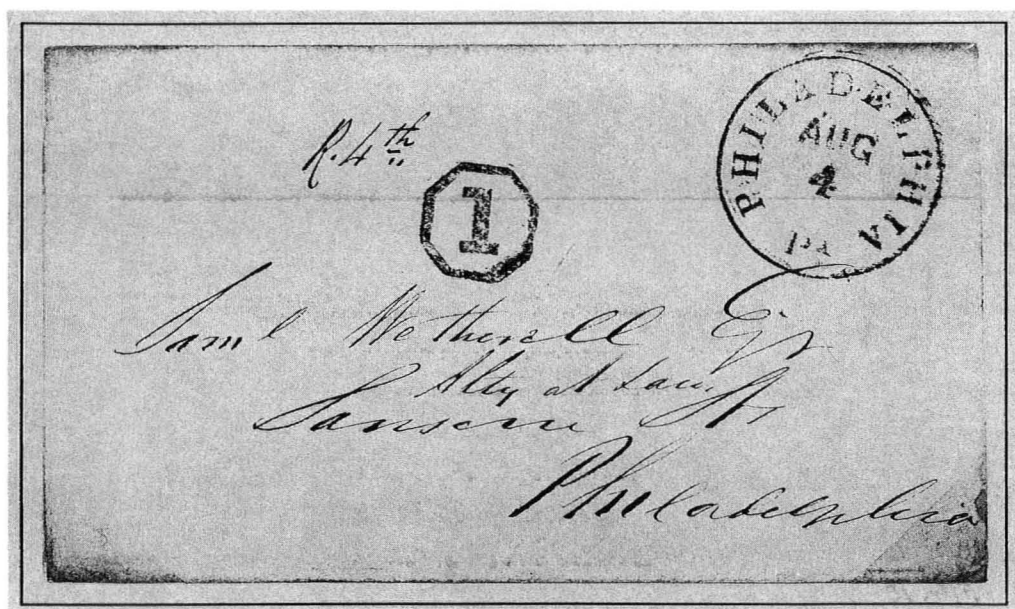 R. 4th
PHILADELPHIA Pa
AUG
4
1
Saml Wetherell Esqr
Atty at Law.
Sansom St
Philadelphia